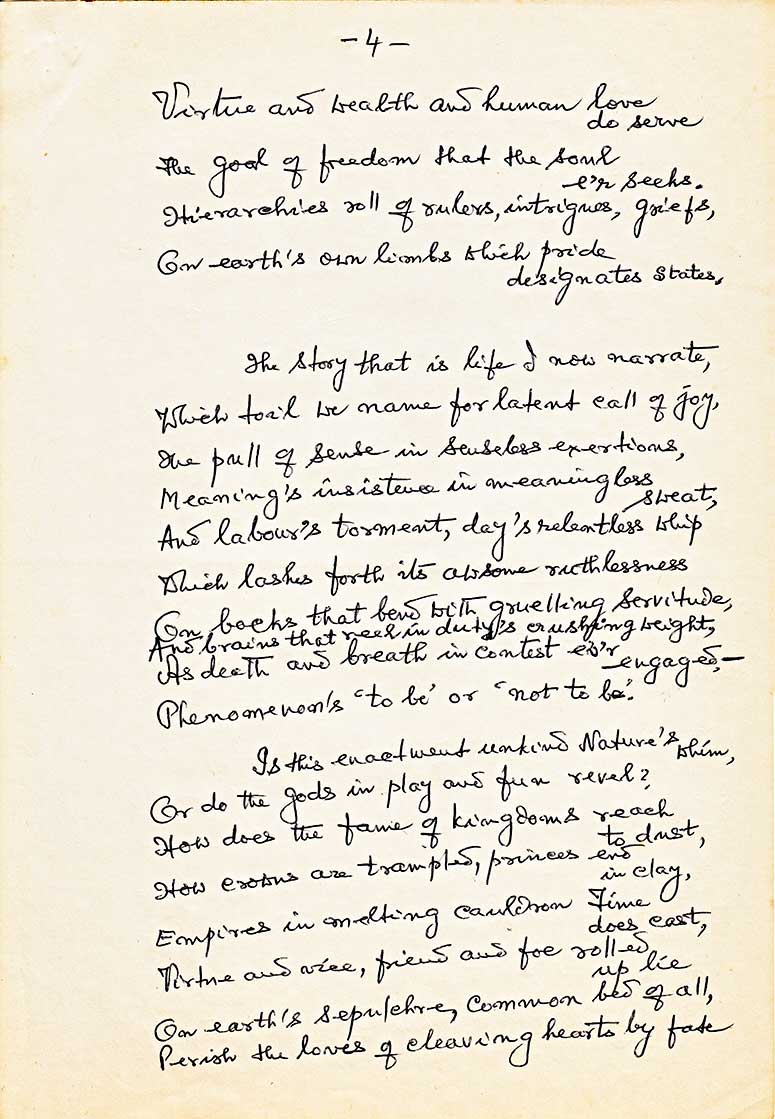 -4-
Virtue and wealth and human love
do serve
The goal of freedom that the soul
e'r seeks.
Hierarchies roll of rulers, intrigues, griefs,
On earth's own limbs which pride
designates States.
The story that is life I now narrate,
Which toil we name for latent call of joy,
The pull of sense in senseless exertions,
Meaning's insistence in meaningless
sweat,
And labour's torment, day's relentless whip
Which lashes forth its awsome ruthlessness
On backs that bend with gruelling servitude,
And brains that reel in duty's crushing weight,
As death and breath in contest ev'r
engaged,—
Phenomenon's 'to be' or 'not to be'.
Is this enactment unkind Nature's whim,
Or do the gods in play and fun revel?
How does the fame of kingdoms reach
to dust,
How crowns are trampled, princes end
in clay,
Empires in melting cauldron Time
does cast,
Virtue and vice, friend and foe rolled
up lie
On earth's sepulchre, common bed of all,
Perish the loves of cleaving hearts by fate